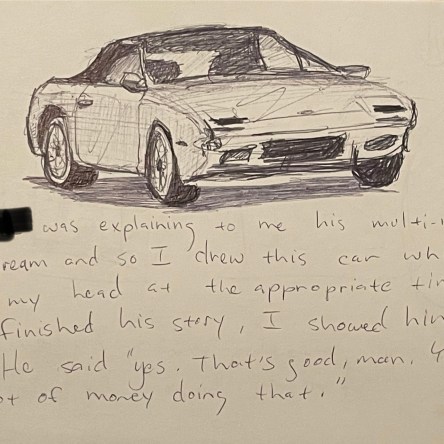 was explaining to me his multi-
ream and so I drew this car wh
my head at the appropriate tim
finished his story, I showed him
He said "yes. That's good, man. Y
ot of money doing that."